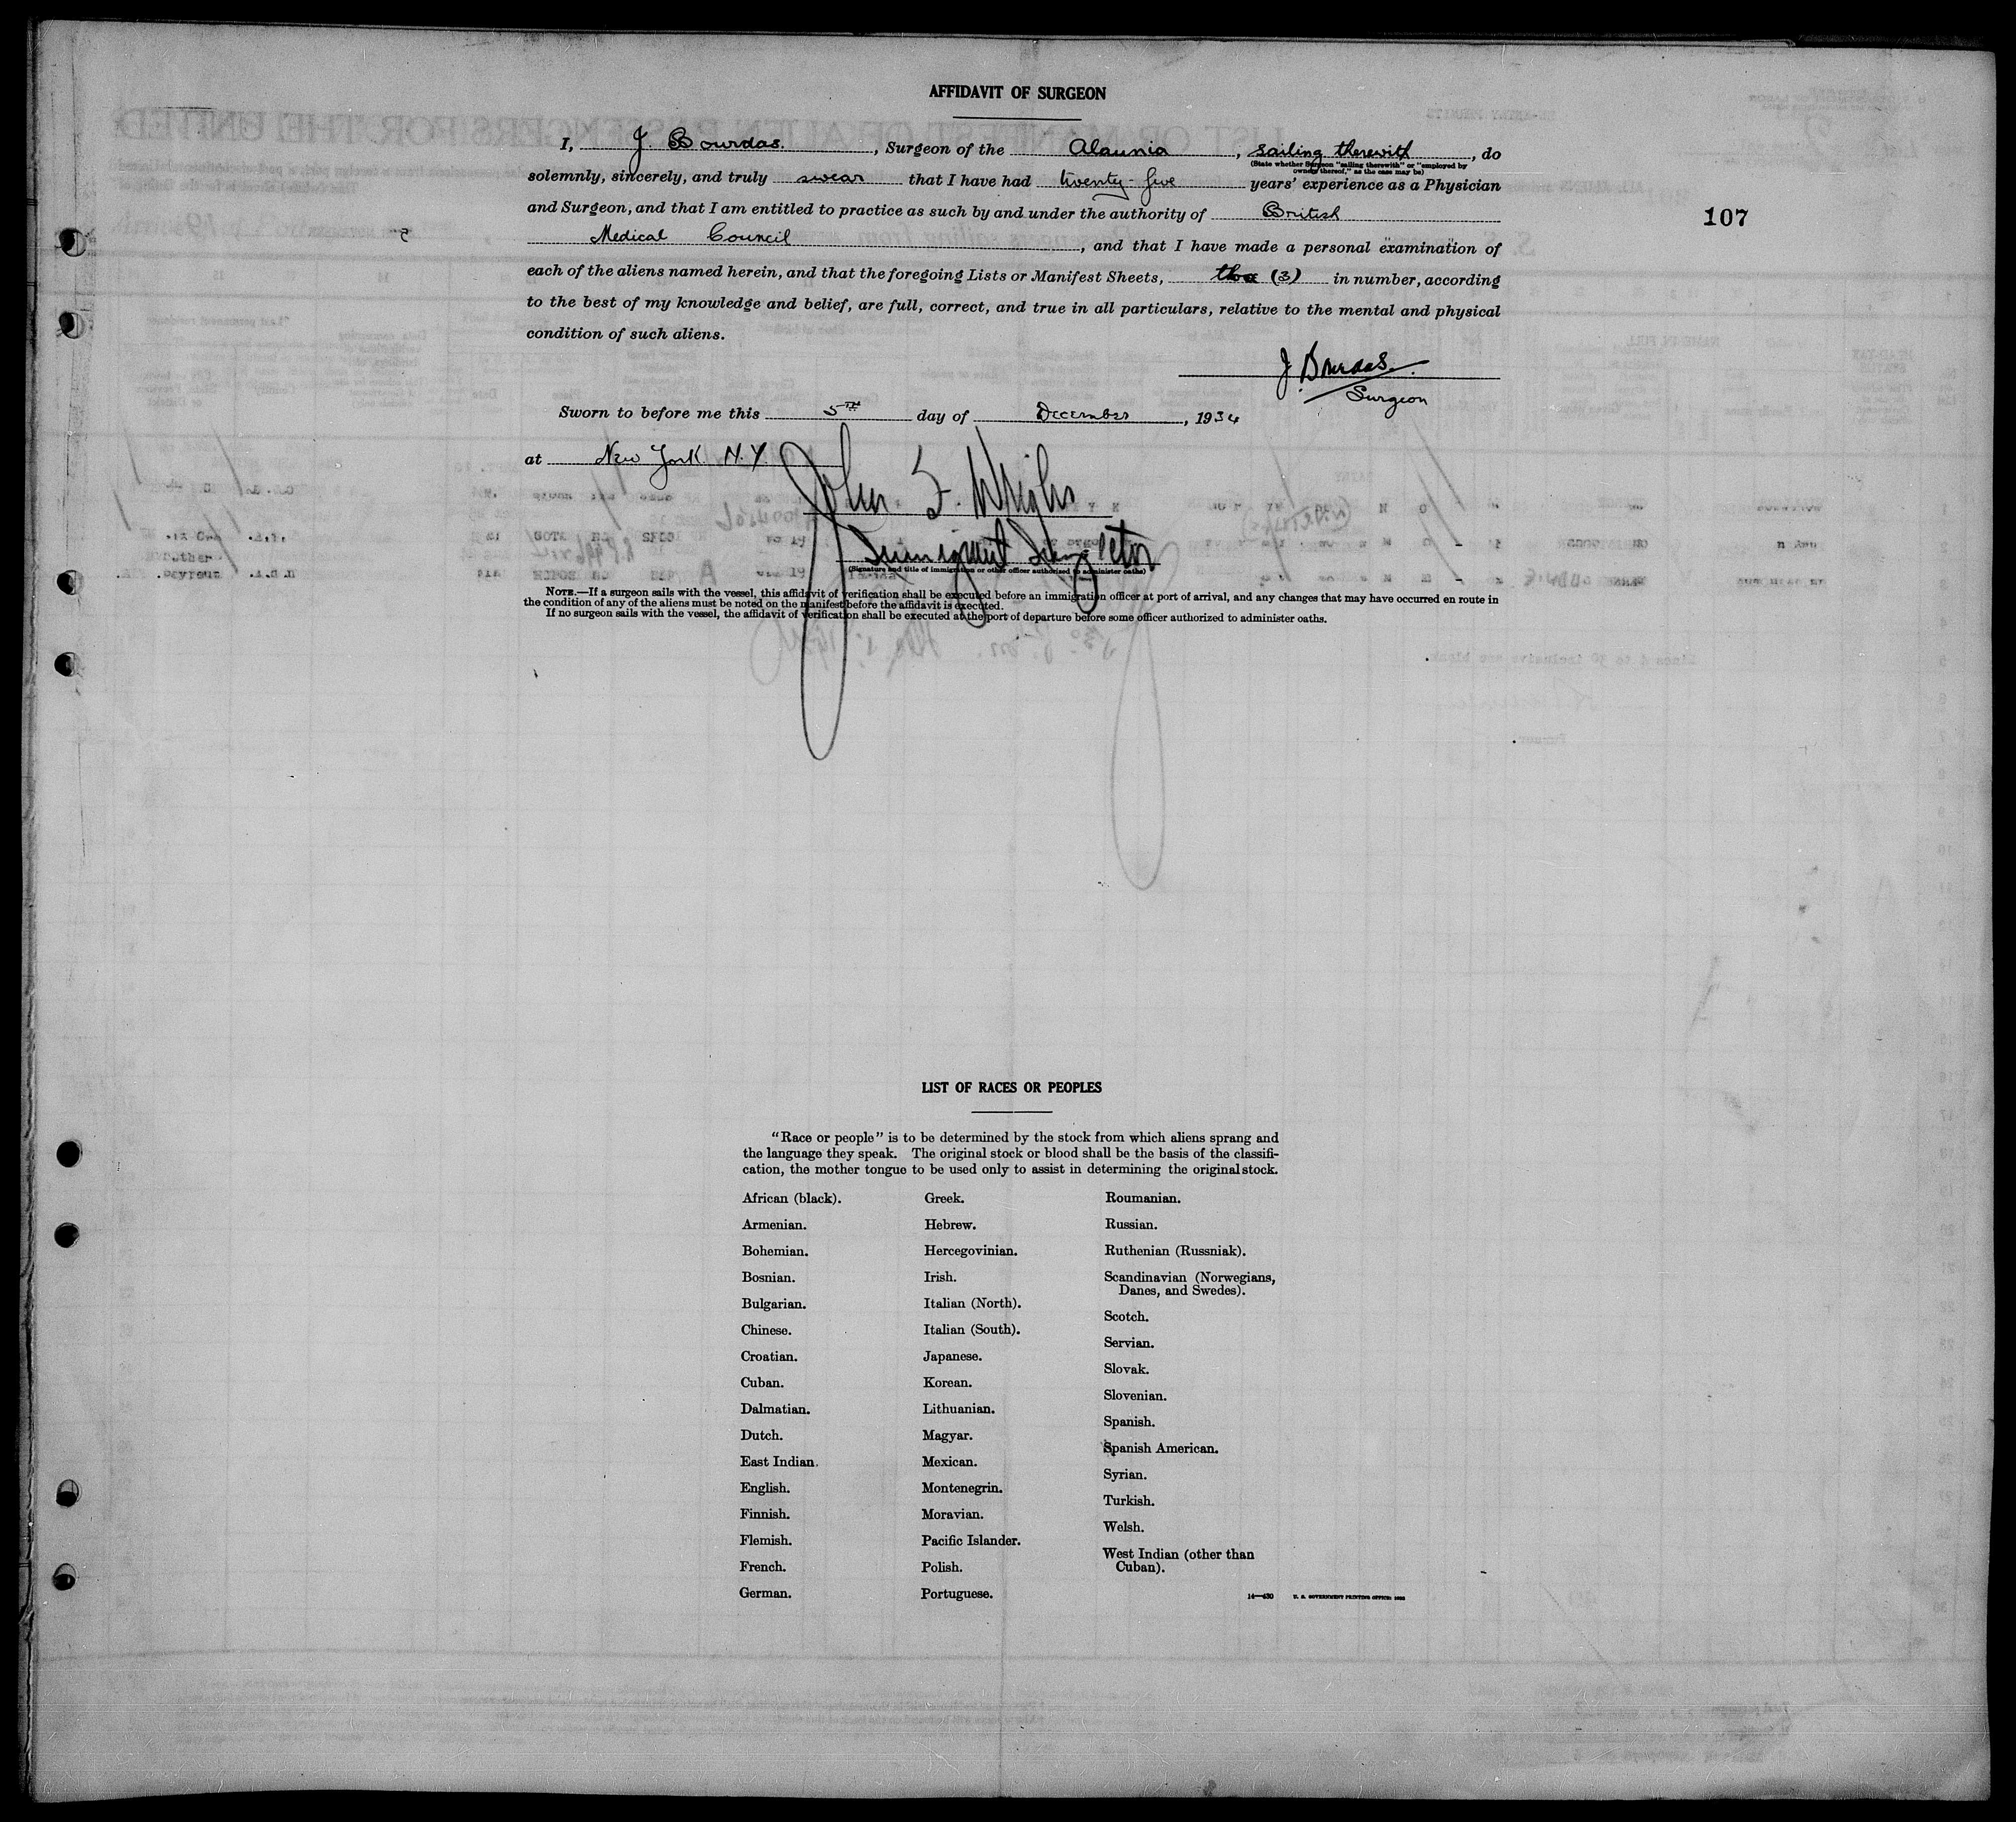 AFFIDAVIT OF SURGEON
I, J. Bourdas. , Surgeon of the Alaunia , sailing therewith , do
(State whether Surgeon "sailing therewith" or "employed by
owners thereof," as the case may be)
solemnly, sincerely, and truly swear that I have had twenty-five years' experience as a Physician
and Surgeon, and that I am entitled to practice as such by and under the authority of British
107
Medical Council , and that I have made a personal examination of
each of the aliens named herein, and that the foregoing Lists or Manifest Sheets, (3) in number, according
to the best of my knowledge and belief, are full, correct, and true in all particulars, relative to the mental and physical
condition of such aliens.
J. Bourdas.
Surgeon
Sworn to before me this 5TH day of December , 1934
at New York N.Y.
John F. Wright
Immigrant Inspector
(Signature and title of immigration or other officer authorized to administer oaths)
NOTE.—If a surgeon sails with the vessel, this affidavit of verification shall be executed before an immigration officer at port of arrival, and any changes that may have occurred en route in
the condition of any of the aliens must be noted on the manifest before the affidavit is executed.
If no surgeon sails with the vessel, the affidavit of verification shall be executed at the port of departure before some officer authorized to administer oaths.
LIST OF RACES OR PEOPLES
"Race or people" is to be determined by the stock from which aliens sprang and
the language they speak. The original stock or blood shall be the basis of the classifi-
cation, the mother tongue to be used only to assist in determining the original stock.
African (black).
Armenian.
Bohemian.
Bosnian.
Bulgarian.
Chinese.
Croatian.
Cuban.
Dalmatian.
Dutch.
East Indian.
English.
Finnish.
Flemish.
French.
German.
Greek.
Hebrew.
Hercegovinian.
Irish.
Italian (North).
Italian (South).
Japanese.
Korean.
Lithuanian.
Magyar.
Mexican.
Montenegrin.
Moravian.
Pacific Islander.
Polish.
Portuguese.
Roumanian.
Russian.
Ruthenian (Russniak).
Scandinavian (Norwegians,
Danes, and Swedes).
Scotch.
Servian.
Slovak.
Slovenian.
Spanish.
Spanish American.
Syrian.
Turkish.
Welsh.
West Indian (other than
Cuban).
14—430 U. S. GOVERNMENT PRINTING OFFICE: